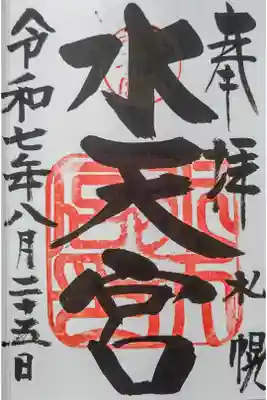 奉拝 札幌
水天宮
令和七年八月二十五日